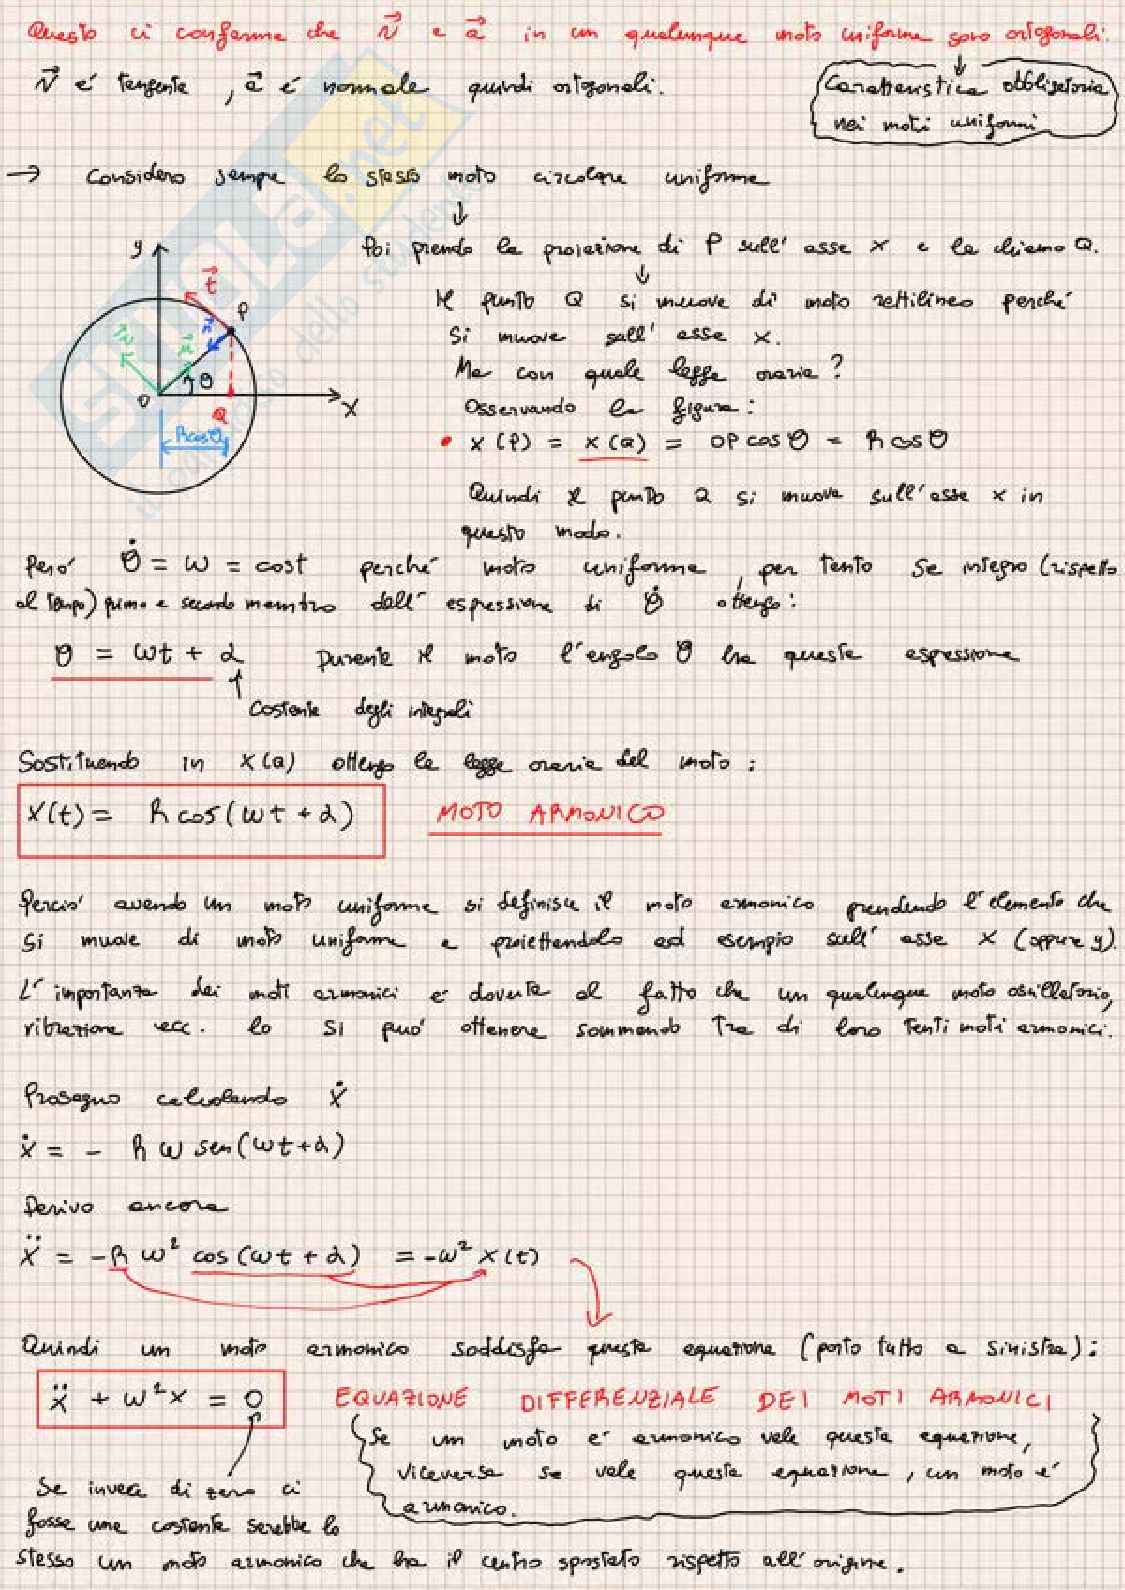 Questo ci conferma che v⃗ e a⃗ in un qualunque moto uniforme sono ortogonali.
v⃗ é tangente, a⃗ é normale quindi ortogonali.
Caratteristica obbligatoria
nei moti uniformi
→ Considero sempre lo stesso moto circolare uniforme
Poi prendo la proiezione di P sull' asse x e la chiamo Q.
Il punto Q si muove di moto rettilineo perché
si muove sull' asse x.
Ma con quale legge oraria?
Osservando la figura:
• x(P) = x(Q) = OP cos θ = R cos θ
Quindi il punto Q si muove sull'asse x in
questo modo.
y
t⃗
P
n⃗
θ
O
Q
x
R cos θ
Peró θ̇ = ω = cost perché moto uniforme, per tanto se integro (rispetto
al tempo) primo e secondo membro dell' espressione di θ̇ ottengo:
θ = ωt + α Durante il moto l'angolo θ ha questa espressione
Costante degli integrali
Sostituendo in x(Q) ottengo la legge oraria del moto:
x(t) = R cos(ωt + α) MOTO ARMONICO
Perció avendo un moto uniforme si definisce il moto armonico prendendo l'elemento che
si muove di moto uniforme e proiettandolo ad esempio sull' asse x (oppure y)
L'importanza dei moti armonici é dovuta al fatto che un qualunque moto oscillatorio,
vibrazione ecc. lo si puó ottenere sommando tra di loro tanti moti armonici.
Proseguo calcolando ẋ
ẋ = - R ω sen(ωt+α)
Derivo ancora
ẍ = -R ω² cos(ωt + α) = -ω² x(t)
Quindi un moto armonico soddisfa questa equazione (porto tutto a sinistra):
ẍ + ω²x = 0 EQUAZIONE DIFFERENZIALE DEI MOTI ARMONICI
Se un moto é armonico vale questa equazione,
viceversa se vale questa equazione, un moto é
armonico.
Se invece di zero ci
fosse una costante sarebbe lo
stesso un moto armonico che ha il centro spostato rispetto all'origine.